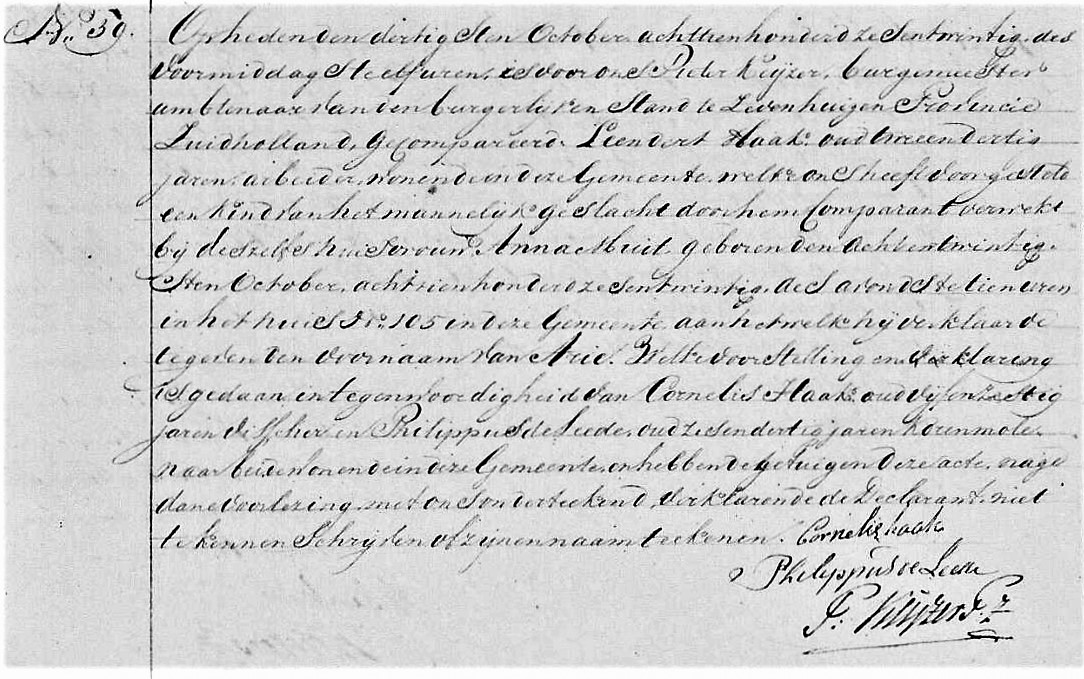 No. 59. Op heden den dertigsten October achttienhonderd zesentwintig, des
voormiddags te elf uren, is voor ons Pieter Keijzer, burgemeester
ambtenaar van den burgerlijken Stand te Zevenhuizen Provincie
Zuidholland, Gecompareerd Leendert Haak oud tweeendertig
jaren arbeider, wonende in deze Gemeente welke ons heeft voorgesteld
een kind van het mannelijk geslacht door hem Comparant verwekt
bij deszelfs huisvrouw Anna Muit geboren den achtentwintig-
sten October, achttienhonderd zesentwintig, des avonds te tien uren
in het huis No. 105 in deze Gemeente aan hetwelk hij verklaarde
te geven den voornaam van Arie. Welke voorstelling en verklaring
is gedaan in tegenwoordigheid van Cornelis Haak oud vijfenzestig
jaren visscher en Philippus de Leede, oud zesendertig jaren korenmole-
naar beide wonende in deze Gemeente, en hebben de getuigen deze acte, na ge-
dane voorlezing, met ons onderteekend, verklarende de Declarant niet
te kennen Schrijven of zijnen naam teekenen. Cornelis haak
Philippus de Leede
P. Keijzer Pz